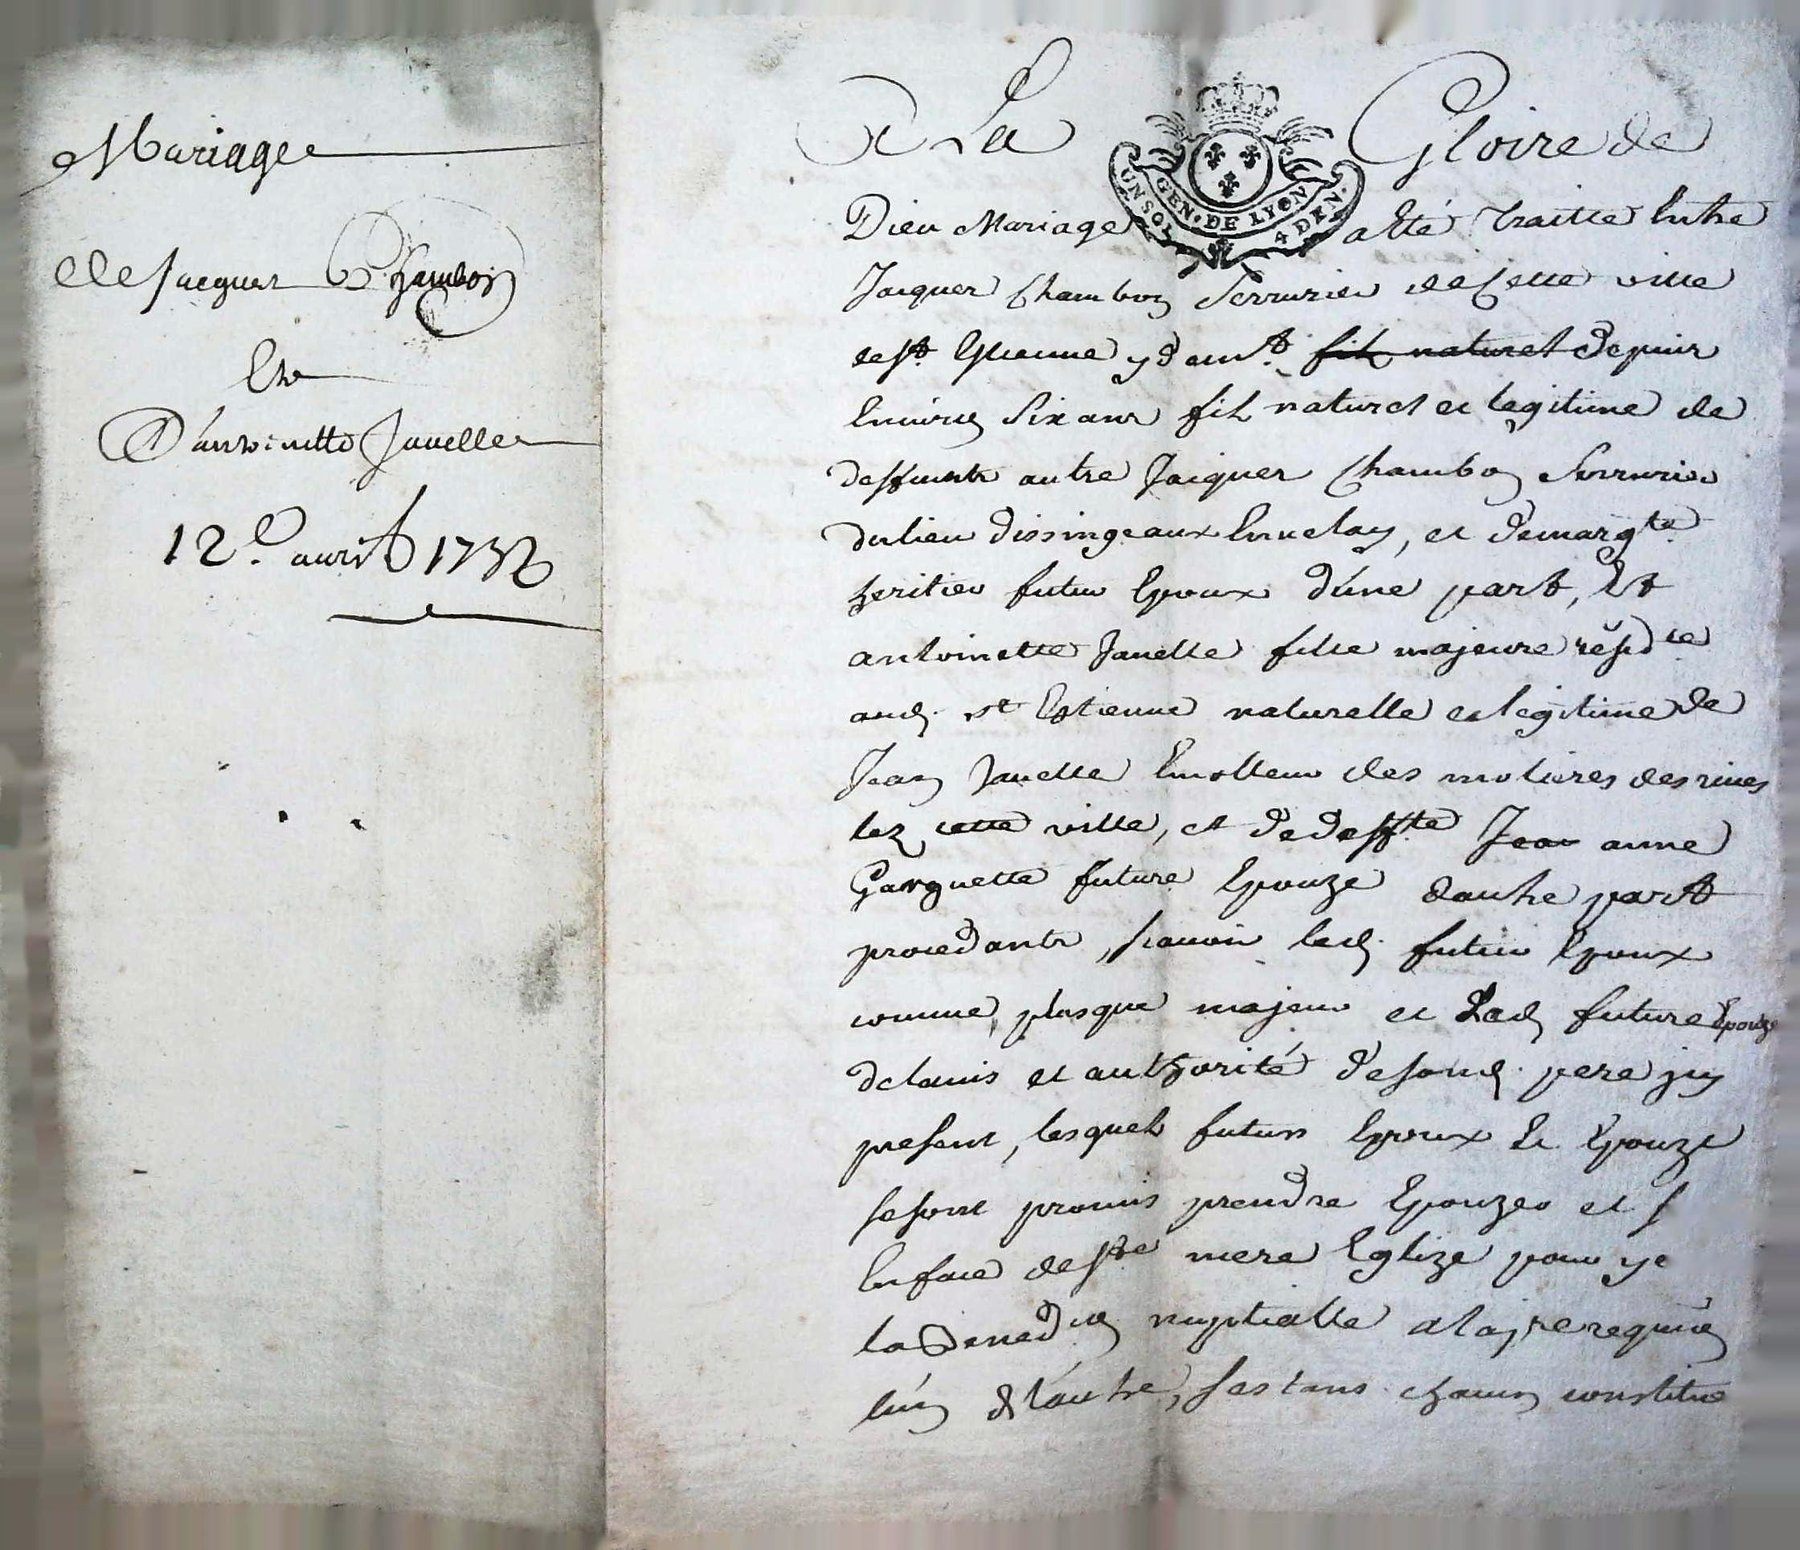 Mariage
de Jacques Chambon
Et
D'antoinette Javelle
12e. avril 173
A La Gloire de
GEN. DE LYON
UN SOL 4 DEN.
Dieu Mariage a été traitté Entre
Jacques Chambon Serrurier de Cette ville
de st Estienne y demt. fils naturel depuis
Environ Six ans fils naturel et legitime de
deffunts autre Jacques Chambon Serrurier
du lieu dissingeaux En velay, et de margte
heritier futur Epoux d'une part, Et
antoinette Javelle fille majeure résidte
aud. st Estienne naturelle et legitime de
Jean Javelle Emolleur des molieres des rives
lez cette ville, et de deffte Jea anne
Garguette future Epouze dautre part
procedants, scavoir led. futur Epoux
comme plus que majeur et Lad. future Epouze
de lavis et authorité de sond. pere icy
present, lesquels futurs Epoux Et Epouze
se sont promis prendre Epouzer et s
En face de ste mere Eglize pour y e
la Benedon nuptialle a la pre requion
lún de l'autre, se estans chacun constitue